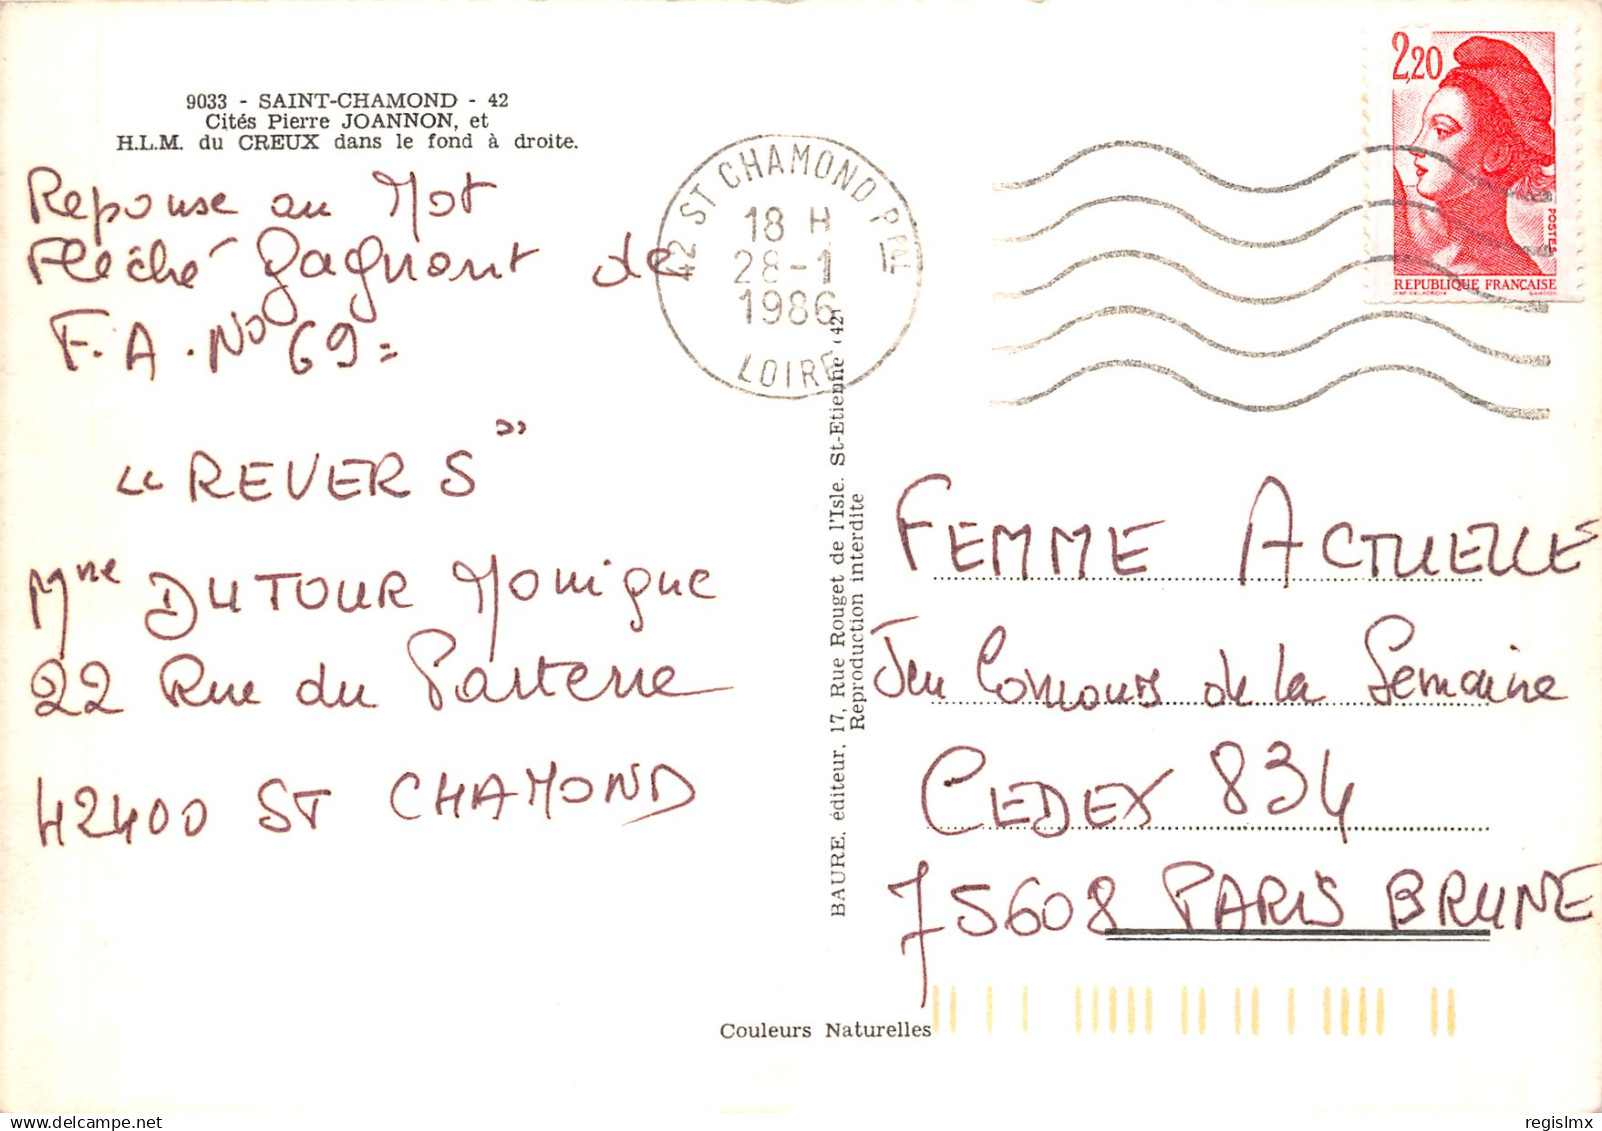 9033 - SAINT-CHAMOND - 42
Cités Pierre JOANNON, et
H.L.M. du CREUX dans le fond à droite.
Reponse au Mot
Fléché gagnant de
F.A. No 69=
"REVERS"
Mme DUTOUR Monique
22 Rue du Parterre
42400 ST CHAMOND
42 ST CHAMOND PPAL
18 H
28-1
1986
LOIRE
2,20
POSTES
REPUBLIQUE FRANÇAISE
BAURE, éditeur, 17, Rue Rouget de l'Isle. St-Etienne (42)
Reproduction interdite
FEMME ACTUELLE
Jeu Concours de la Semaine
CEDEX 834
75608 PARIS BRUNE
Couleurs Naturelles
regislmx